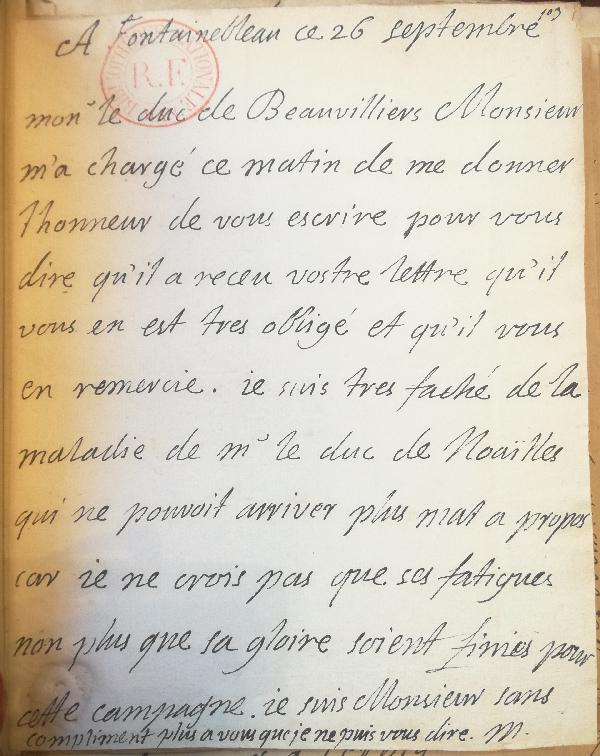 103
A Fontainebleau ce 26 septembre
BIBLIOTHEQUE NATIONALE
R.F.
monr le duc de Beauvilliers Monsieur
m'a chargé ce matin de me donner
l'honneur de vous escrire pour vous
dire qu'il a receu vostre lettre qu'il
vous en est tres obligé et qu'il vous
en remercie. ie suis tres faché de la
maladie de mr le duc de Noaïlles
qui ne pouvoit arriver plus mal a propos
car ie ne crois pas que ses fatigues
non plus que sa gloire soient finies pour
cette campagne. ie suis Monsieur sans
compliment plus a vous que je ne puis vous dire. M.